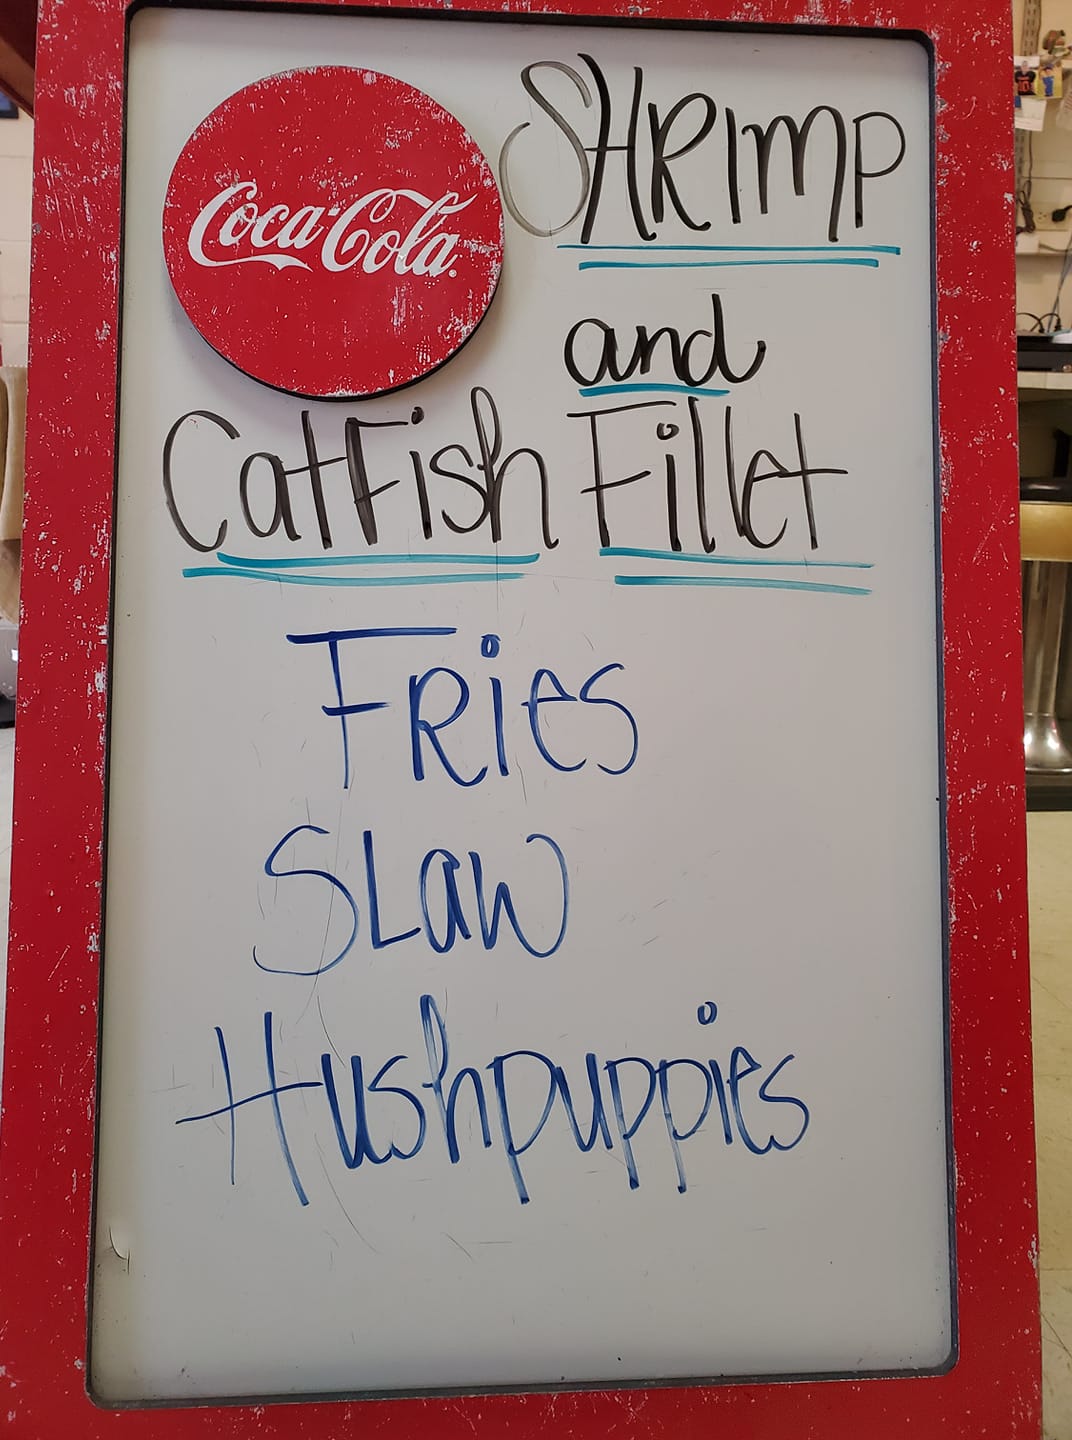 Coca-Cola
SHRImP
and
CatFish Fillet
FRies
SLaw
Hushpuppies